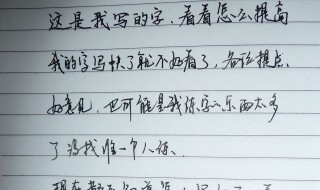 这是我写的字，看看怎么提高
我的字写快了就不好看了，各位提点
好意见，也可能是我练字的东西太多
了没找准一个人练、
现在都不知道怎